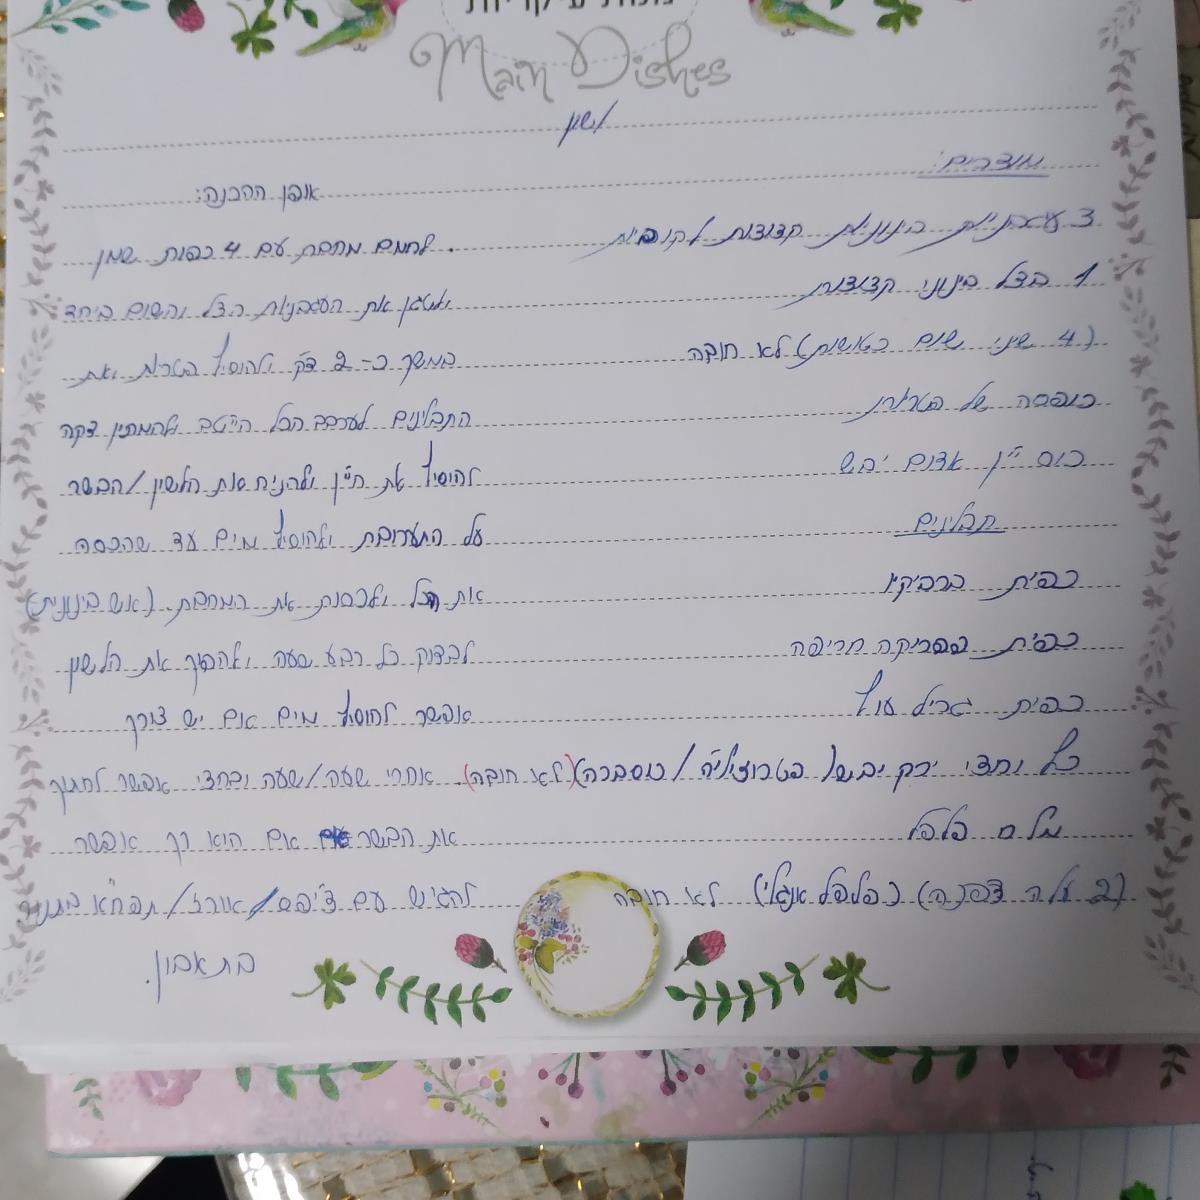 מנות עיקריות
Main Dishes
לשון
מוצרים:
3 עגבניות בינוניות קצוצות לקוביות
1 בצל בינוני קצוצות
(4 שיני שום כתושות) לא חובה
קופסה של פטריות
כוס יין אדום יבש
תבלינים
כפית ברביקיו
כפית פפריקה חריפה
כפית גריל עוף
כף וחצי ירק יבש (פטרוזיליה/כוסברה) (לא חובה)
מלח פלפל
(2 עלה דפנה) (פלפל אנגלי) לא חובה
אופן ההכנה:
. לחמם מחבת עם 4 כפות שמן
ולטגן את העגבניות הצל והשום ביחד
במשך כ- 2 דק' ולהוסיף פטריות ואת
התבלינים לערבב הכל הייטב ולהמתין דקה
להוסיף את היין ולהניח את הלשון/הבשר
על התערובת ולהוסיף מים עד שהכסה
את הכל ולכסות את המחבת (אש בינונית)
לבדוק כל רבע שעה ולהפוך את הלשון
אפשר להוסיף מים אם יש צורך
אחרי שעה/שעה וחצי אפשר לחתוך
את הבשר אם הוא רך אפשר
להגיש עם צ'יפס/אורז/תפו"א בתנור
בתאבון.